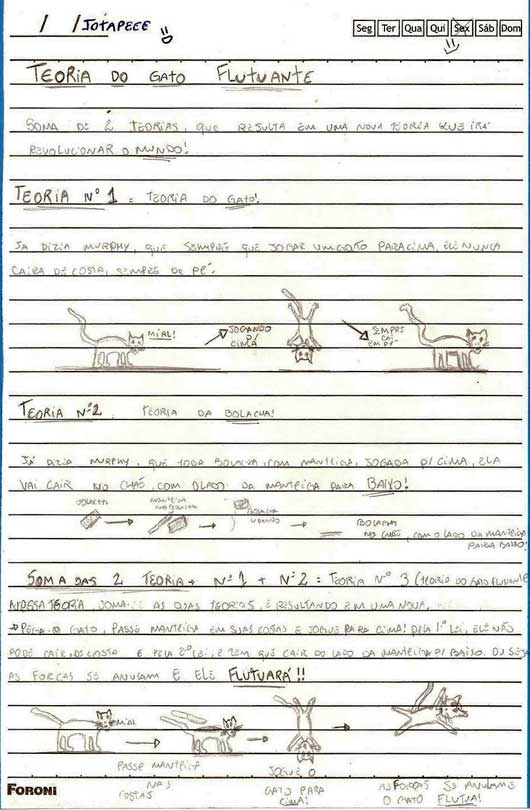 / / JOTAPEEE
Seg Ter Qua Qui Sex Sáb Dom
TEORIA DO GATO FLUTUANTE
SOMA DE 2 TEORIAS, QUE RESULTA EM UMA NOVA TEORIA QUE IRÁ
REVOLUCIONAR O MUNDO!
TEORIA Nº 1 = TEORIA DO GATO!
JÁ DIZIA MURPHY, QUE SEMPRE QUE JOGAR UM GATO PARA CIMA, ELE NUNCA
CAIRA DE COSTA, SEMPRE DE PÉ.
MIAL!
JOGANDO
P/
CIMA
SEMPRE
CAI
EM PÉ
TEORIA Nº2 TEORIA DA BOLACHA!
JÁ DIZIA MURPHY, QUE TODA BOLACHA, COM MANTEIGA, JOGADA P/ CIMA, ELA
VAI CAIR NO CHÃO, COM O LADO DA MANTEIGA PARA BAIXO!
BOLACHA
MANTEIGA
NA BOLACHA
BOLACHA
VOANDO
BOLACHA
NO CHÃO, COM O LADO DA MANTEIGA
PARA BAIXO!
SOMA DAS 2 TEORIA → Nº 1 + Nº 2 = TEORIA Nº 3 (TEORIA DO GATO FLUTUANTE
NOSSA TEORIA SOMA AS DUAS TEORIAS, E RESULTANDO EM UMA NOVA,
→ PEGA O GATO, PASSE MANTEIGA EM SUAS COSTAS E JOGUE PARA CIMA! PELA 1º LEI, ELE NÃO
PODE CAIR DE COSTA E PELA 2º LEI, ELE TEM QUE CAIR DO LADO DA MANTEIGA P/ BAIXO. OU SEJA
AS FORÇAS SE ANULAM E ELE FLUTUARÁ!!
MIAL
PASSE MANTEIGA
NAS
COSTAS
JOGUE O
GATO PARA
CIMA!
AS FORÇAS SE ANULAM E
O GATO FLUTUA!
FORONI